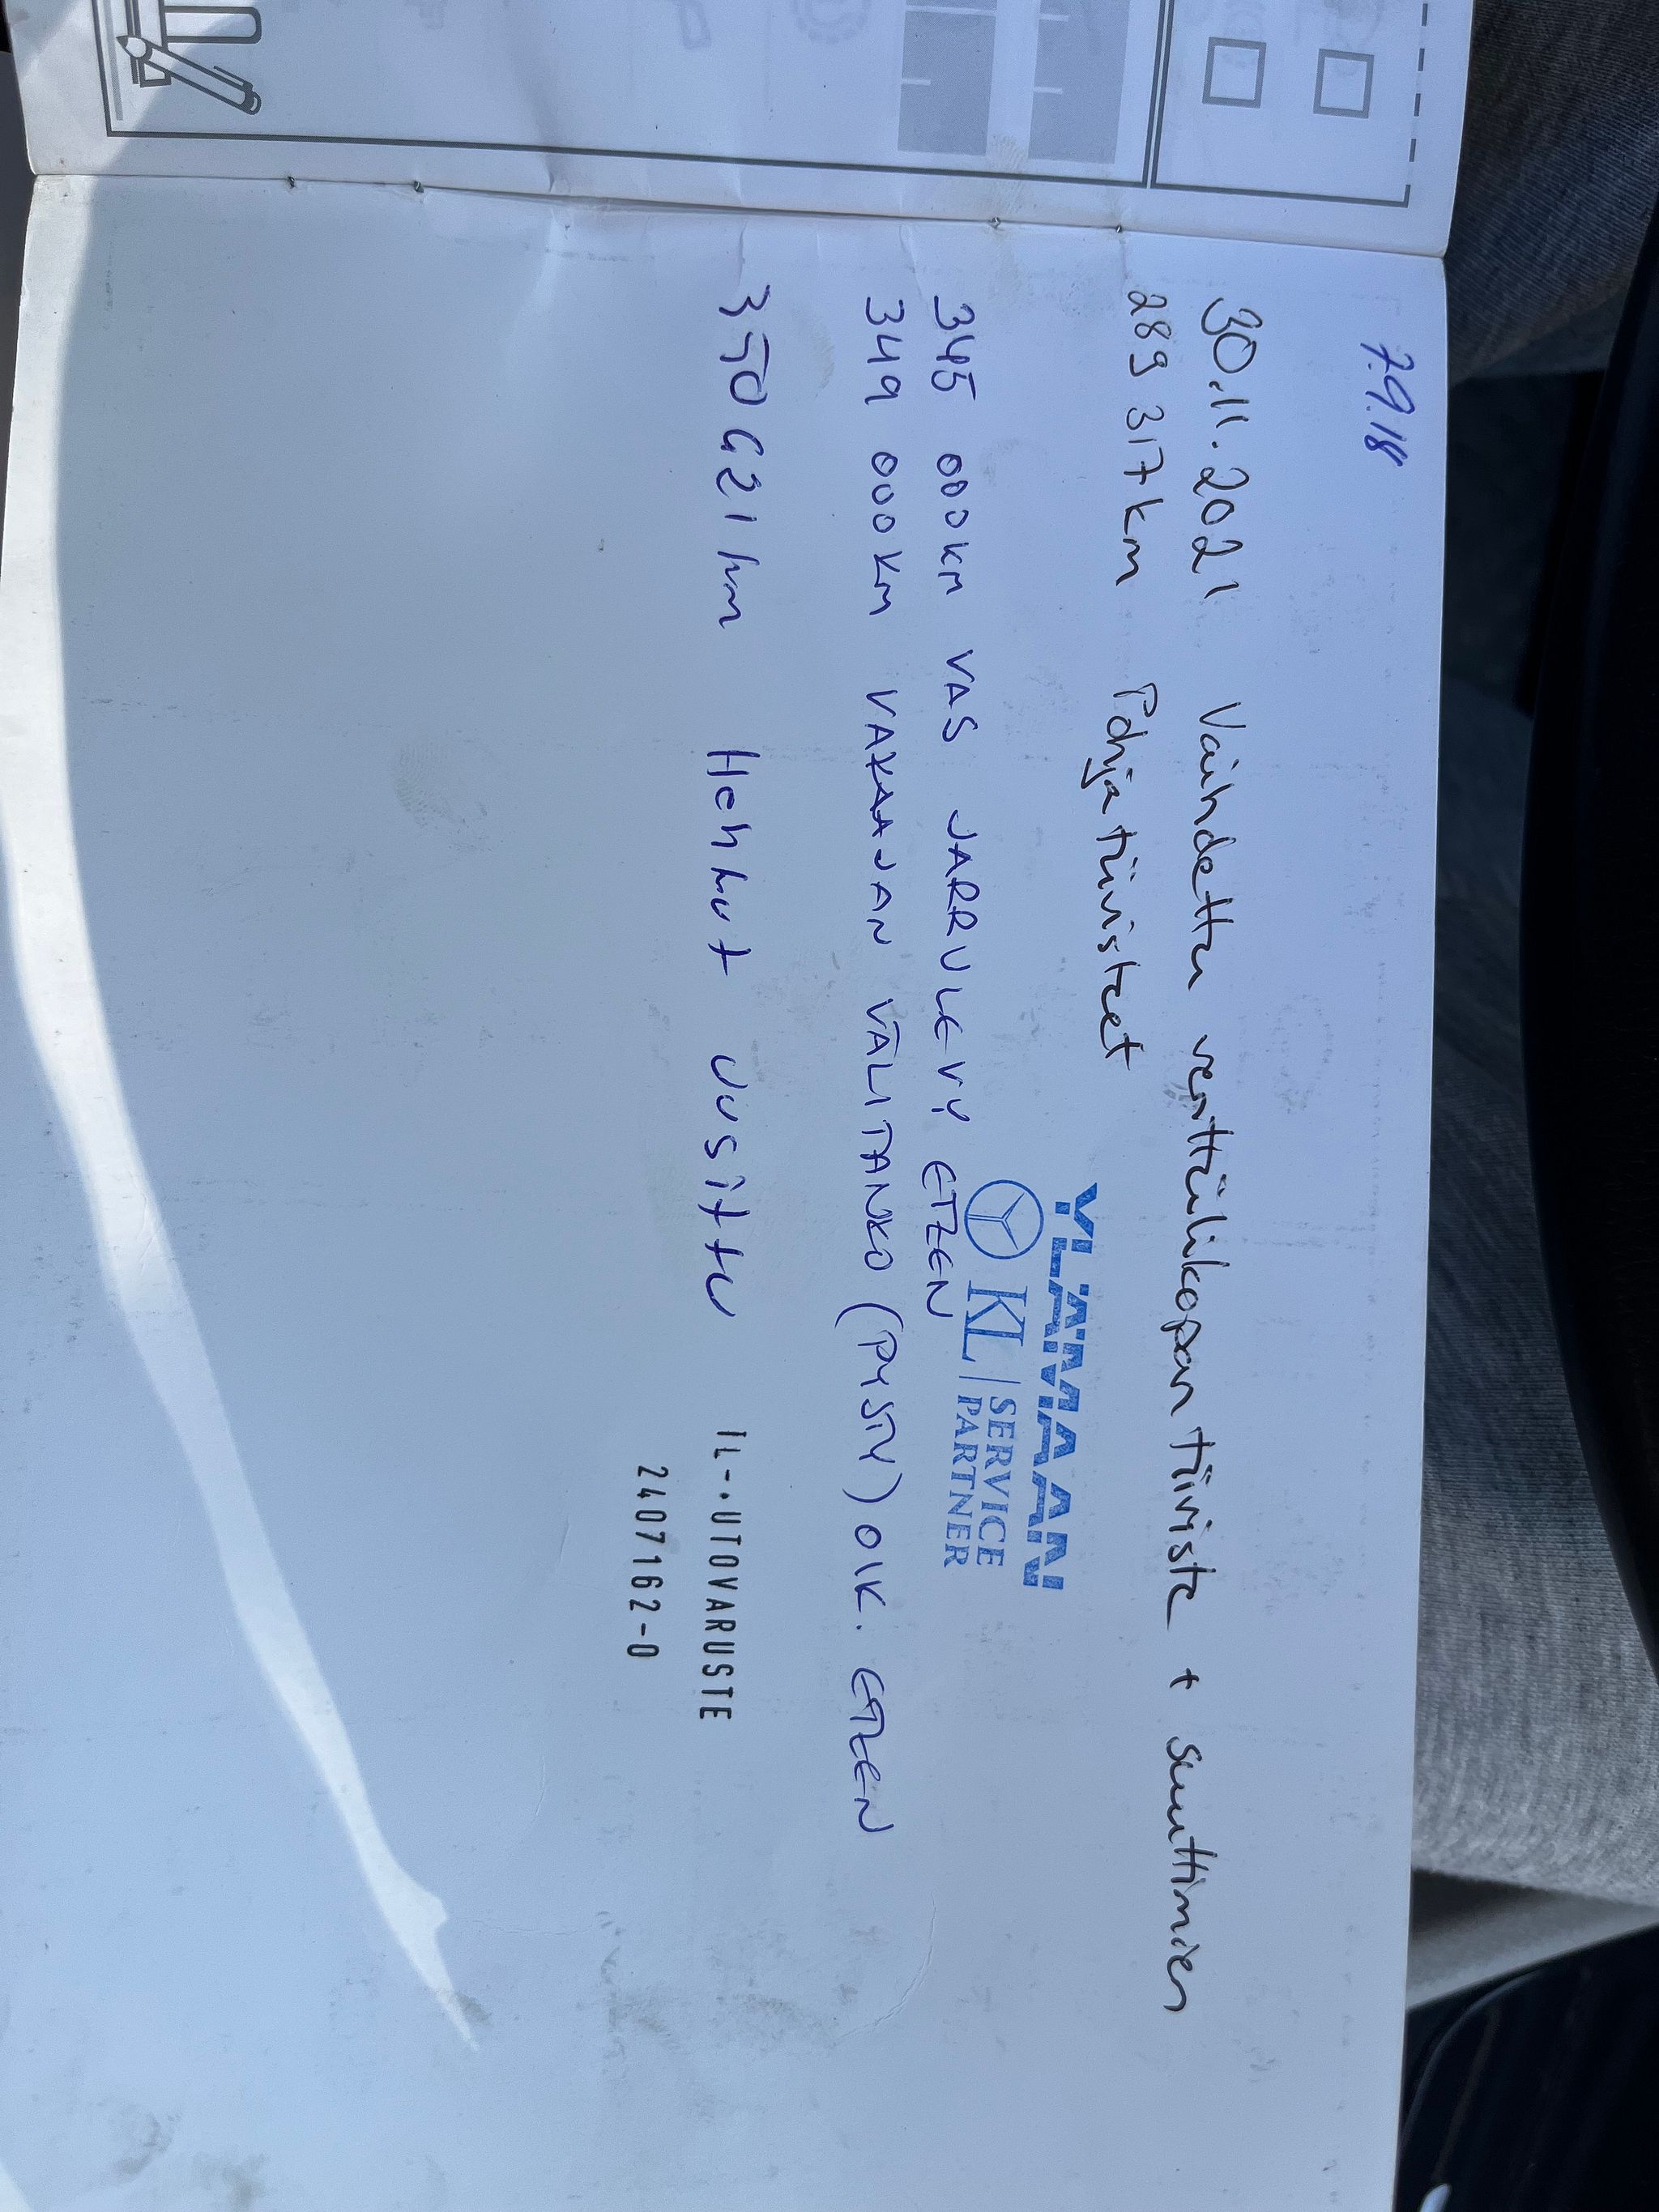 7.9.18
30.11.2021 Vaihdettu venttiilikopan tiiviste + suuttimien
289 317km Pohjatiivisteet
YLÄMAAN
KL | SERVICE
PARTNER
345 000KM VAS JARRULEVY ETEEN
349 000KM VAKAAJAN VÄLITANKO (PYSTY) OIK. ETEEN
350 621 km Hehkut uusittu
IL-.UTOVARUSTE
2407162-0